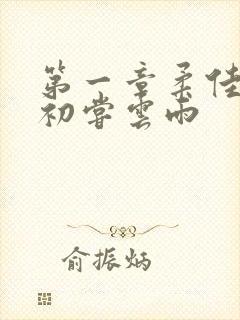 第一章柔佳
初尝雲雨
俞振炳